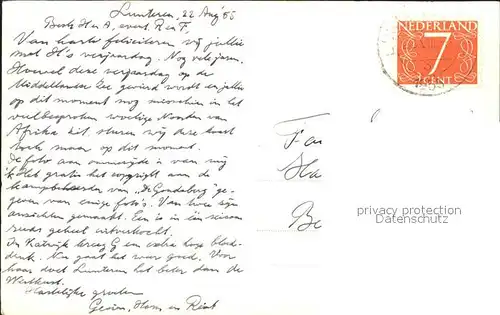 Lunteren, 22 Aug '55
Beste H en A, event. R en F,
Van harte feliciteren wij jullie
met H's verjaardag. Nog vele jaren.
Hoewel deze verjaardag op de
Middellandse Zee gevierd wordt en jullie
op dit moment nog misschien in het
veelbesproken woelige Noorden van
Afrika zit, sturen wij deze kaart
toch maar op dit moment.
De foto aan ommezijde is van mij
Het gratis het copyright aan de
kampbeheerder van "De Goudsberg" ge-
geven van enige foto's. Van twee zijn
ansichten gemaakt. Een is in één seizoen
reeds geheel uitverkocht.
In Katwijk kreeg G een extra hoge bloed-
druk. Nu gaat het weer goed. Voor
haar doet Lunteren het beter dan de
Westkust.
Hartelijke groeten
Hans en
NEDERLAND
7
CENT
Fam
Be
privacy protection
Datenschutz